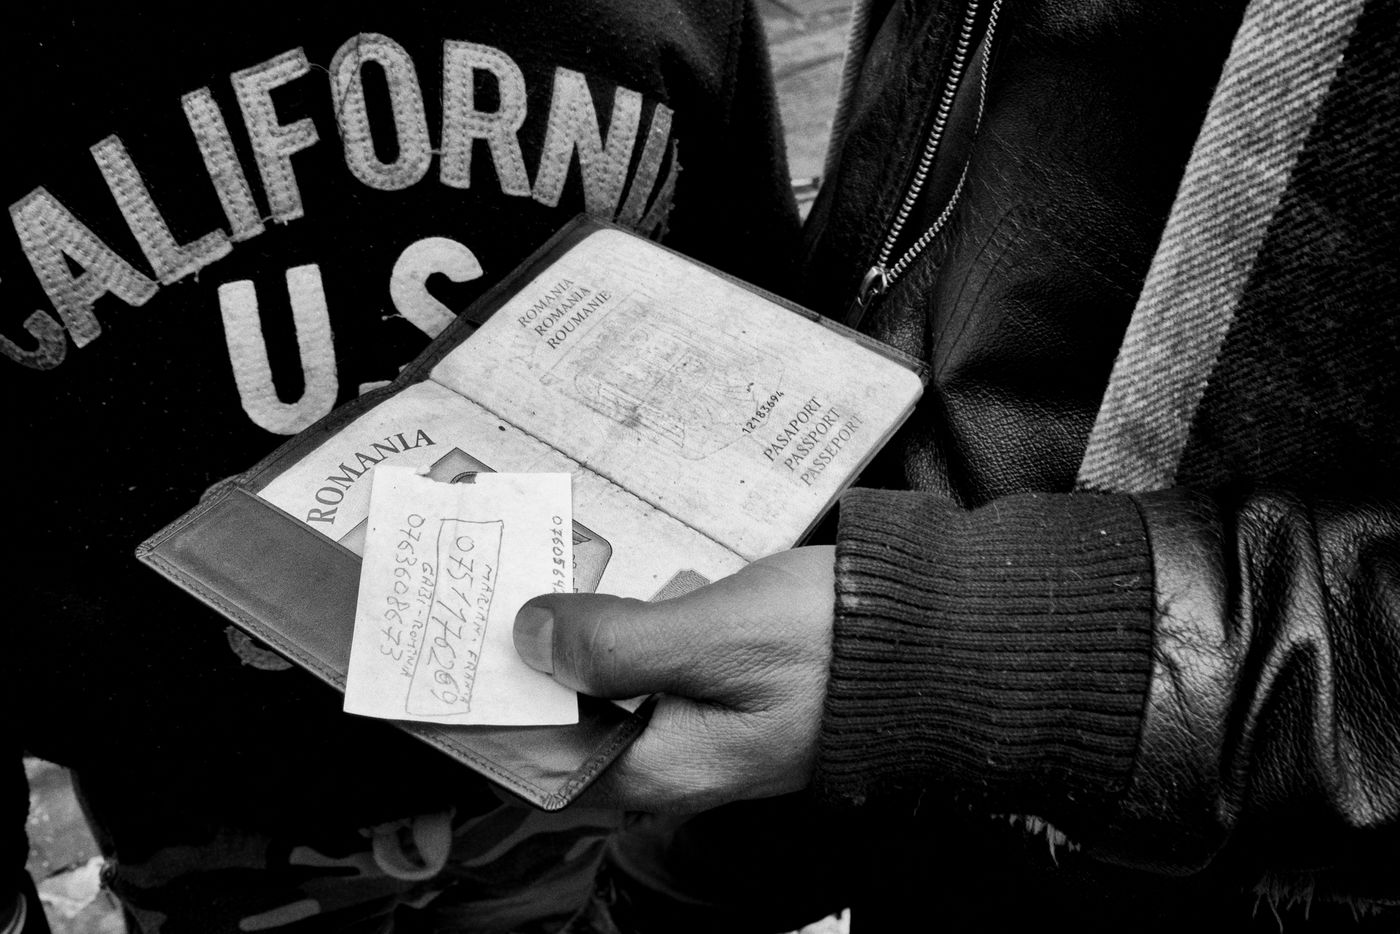 CALIFORNIA
U.S
ROMANIA
ROMANIA
ROUMANIE
12183694
PASAPORT
PASSPORT
PASSEPORT
ROMANIA
MARIAN FRANTA
0751176269
GABI-ROMINIA
0763608673